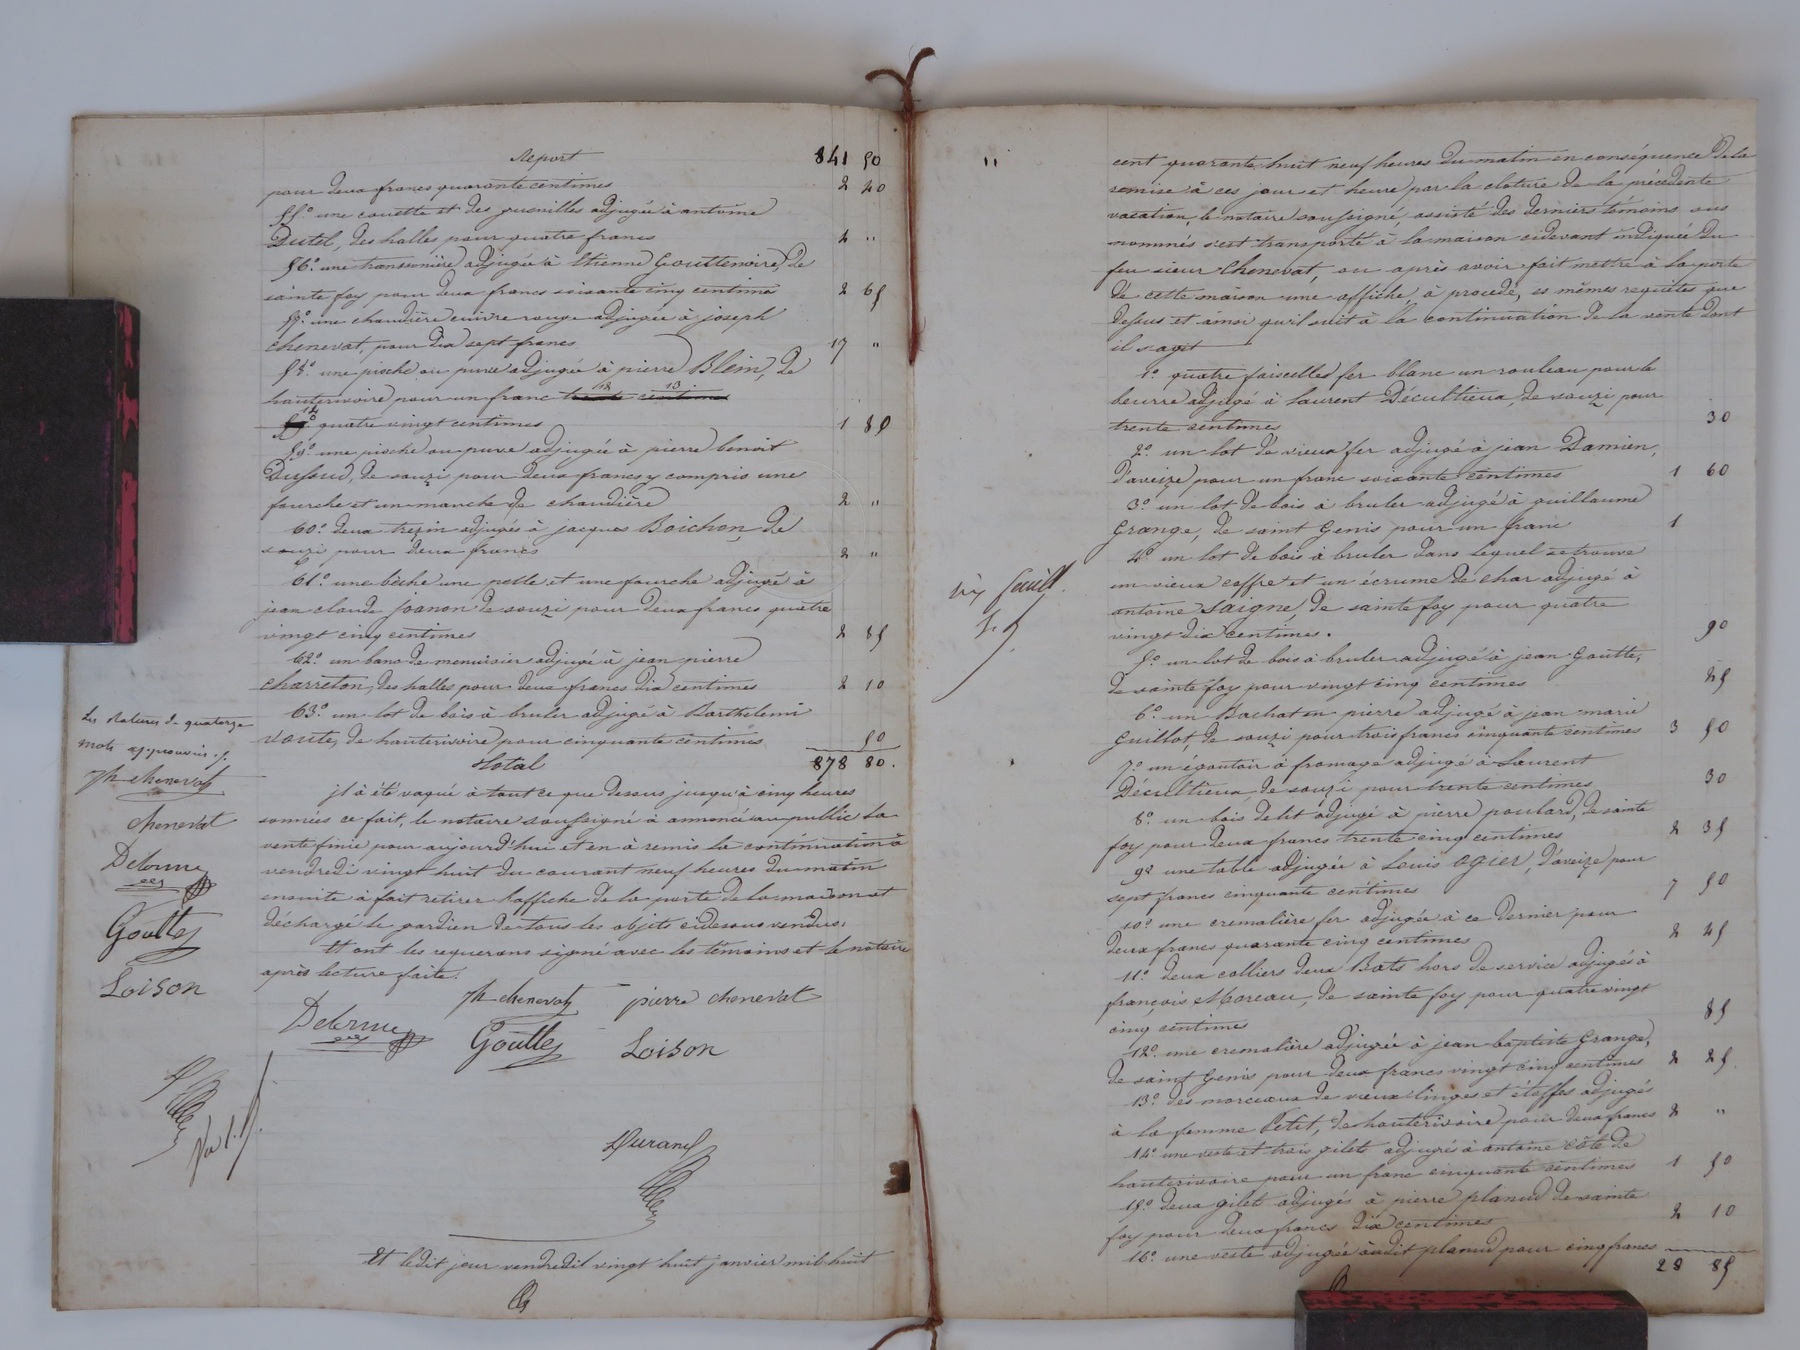 Report 841 50
pour deux francs quarante centimes 2 40
55.° une couette et des guenilles adjugée à antoine
Dutel, des halles pour quatre francs 4 "
56.° une transonnière adjugée à Etienne Gouttenoire, de
sainte foy pour deux francs soixante cinq centimes 2 65
57.° une chaudière cuivre rouge adjugée à joseph
chenevat, pour dix sept francs 17 "
58.° une pioche ou pure adjugée à pierre Blein, de
hauterivoire pour un franc trente centimes
quatre vingt centimes 1 80
59.° une pioche ou pure adjugée à pierre benoit
Dussud, de souzi pour deux francs y compris une
fourche et un manche de chaudière 2 "
60.° deux trezin adjugés à jacques Boichon, de
souzi pour deux francs 2 "
61.° une bêche une pelle et une fourche adjugé à
jean claude joanon de souzi pour deux francs quatre
vingt cinq centimes 2 85
62.° un banc de menuisier adjugé à jean pierre
charreton, des halles pour deux francs dix centimes 2 10
63.° un lot de bois à bruler adjugé à Barthelemi
voute, de hauterivoire pour cinquante centimes 50
Total 878 80.
Les ratures de quatorze
mots approuvées ./.
jh chenevat
chenevat
Delorme
Goutte
Loison
jl à été vaqué à tout ce que dessus jusqu'à cinq heures
sonnées ce fait, le notaire soussigné à annoncé au public la
vente finie pour aujourd'hui et en à remis la continuation à
vendredi vingt huit du courant neuf heures du matin
ensuite à fait retirer l'affiche de la porte de la maison et
déchargé le gardien de tous les objets cidessus vendus.
Et ont les requerans signé avec les témoins et le notaire
après lecture faite.
jh chenevat pierre chenevat
Delorme Goutte Loison
Durand
Et ledit jour vendredit vingt huit janvier mil huit
cent quarante huit neuf heures du matin en conséquence de la
remise à ces jour et heure par la cloture de la précédente
vacation, le notaire soussigné assisté des derniers témoins sus
nommés s'est transporté à la maison cidevant indiquée du
feu sieur Chenevat, ou après avoir fait mettre à la porte
de cette maison une affiche, à procédé, es mêmes requêtes que
dessus et ainsi qu'il suit à la continuation de la vente dont
il s'agit
1.° quatre faiscelles fer blanc un rouleau pour le
beurre adjugé à laurent Décultieux, de souzi pour
trente centimes 30
2.° un lot de vieux fer adjugé à jean Damien,
d'aveize pour un franc soixante centimes 1 60
3.° un lot de bois à bruler adjugé à guillaume
Grange, de saint Genis pour un franc 1
4.° un lot de bois à bruler dans lequel se trouve
un vieux coffre et un écrume de char adjugé à
antoine Saigne, de sainte foy pour quatre
vingt dix centimes. 90
5.° un lot de bois à bruler adjugé à jean Goutte,
de sainte foy pour vingt cinq centimes 25
6.° un Bachat en pierre adjugé à jean marie
Guillot, de souzi pour trois francs cinquante centimes 3 50
7.° un égoutoir à fromage adjugé à Laurent
Décultieux, de souzi pour trente centimes 30
8.° un bois de lit adjugé à pierre poulard, de sainte
foy pour deux francs trente cinq centimes 2 35
9.° une table adjugée à Louis Ogier, d'aveize pour
sept francs cinquante centimes 7 50
10.° une cremalière fer adjugée à ce dernier pour
deux francs quarante cinq centimes 2 45
11.° deux colliers deux Bats hors de service adjugés à
françois Moreau, de sainte foy pour quatre vingt
cinq centimes 85
12.° une cremalière adjugée à jean baptiste Grange,
de saint Genis pour deux francs vingt cinq centimes 2 25
13.° des morceaux de vieux linges et étoffes adjugés
à la femme Petit, de hauterivoire pour deux francs 2 "
14.° une veste et trois gilets adjugés à antoine Côte de
hauterivoire pour un franc cinquante centimes 1 50
15.° deux gilet adjugés à pierre planud de sainte
foy pour deux francs dix centimes 2 10
16.° une veste adjugée audit planud pour cinq francs
28 85